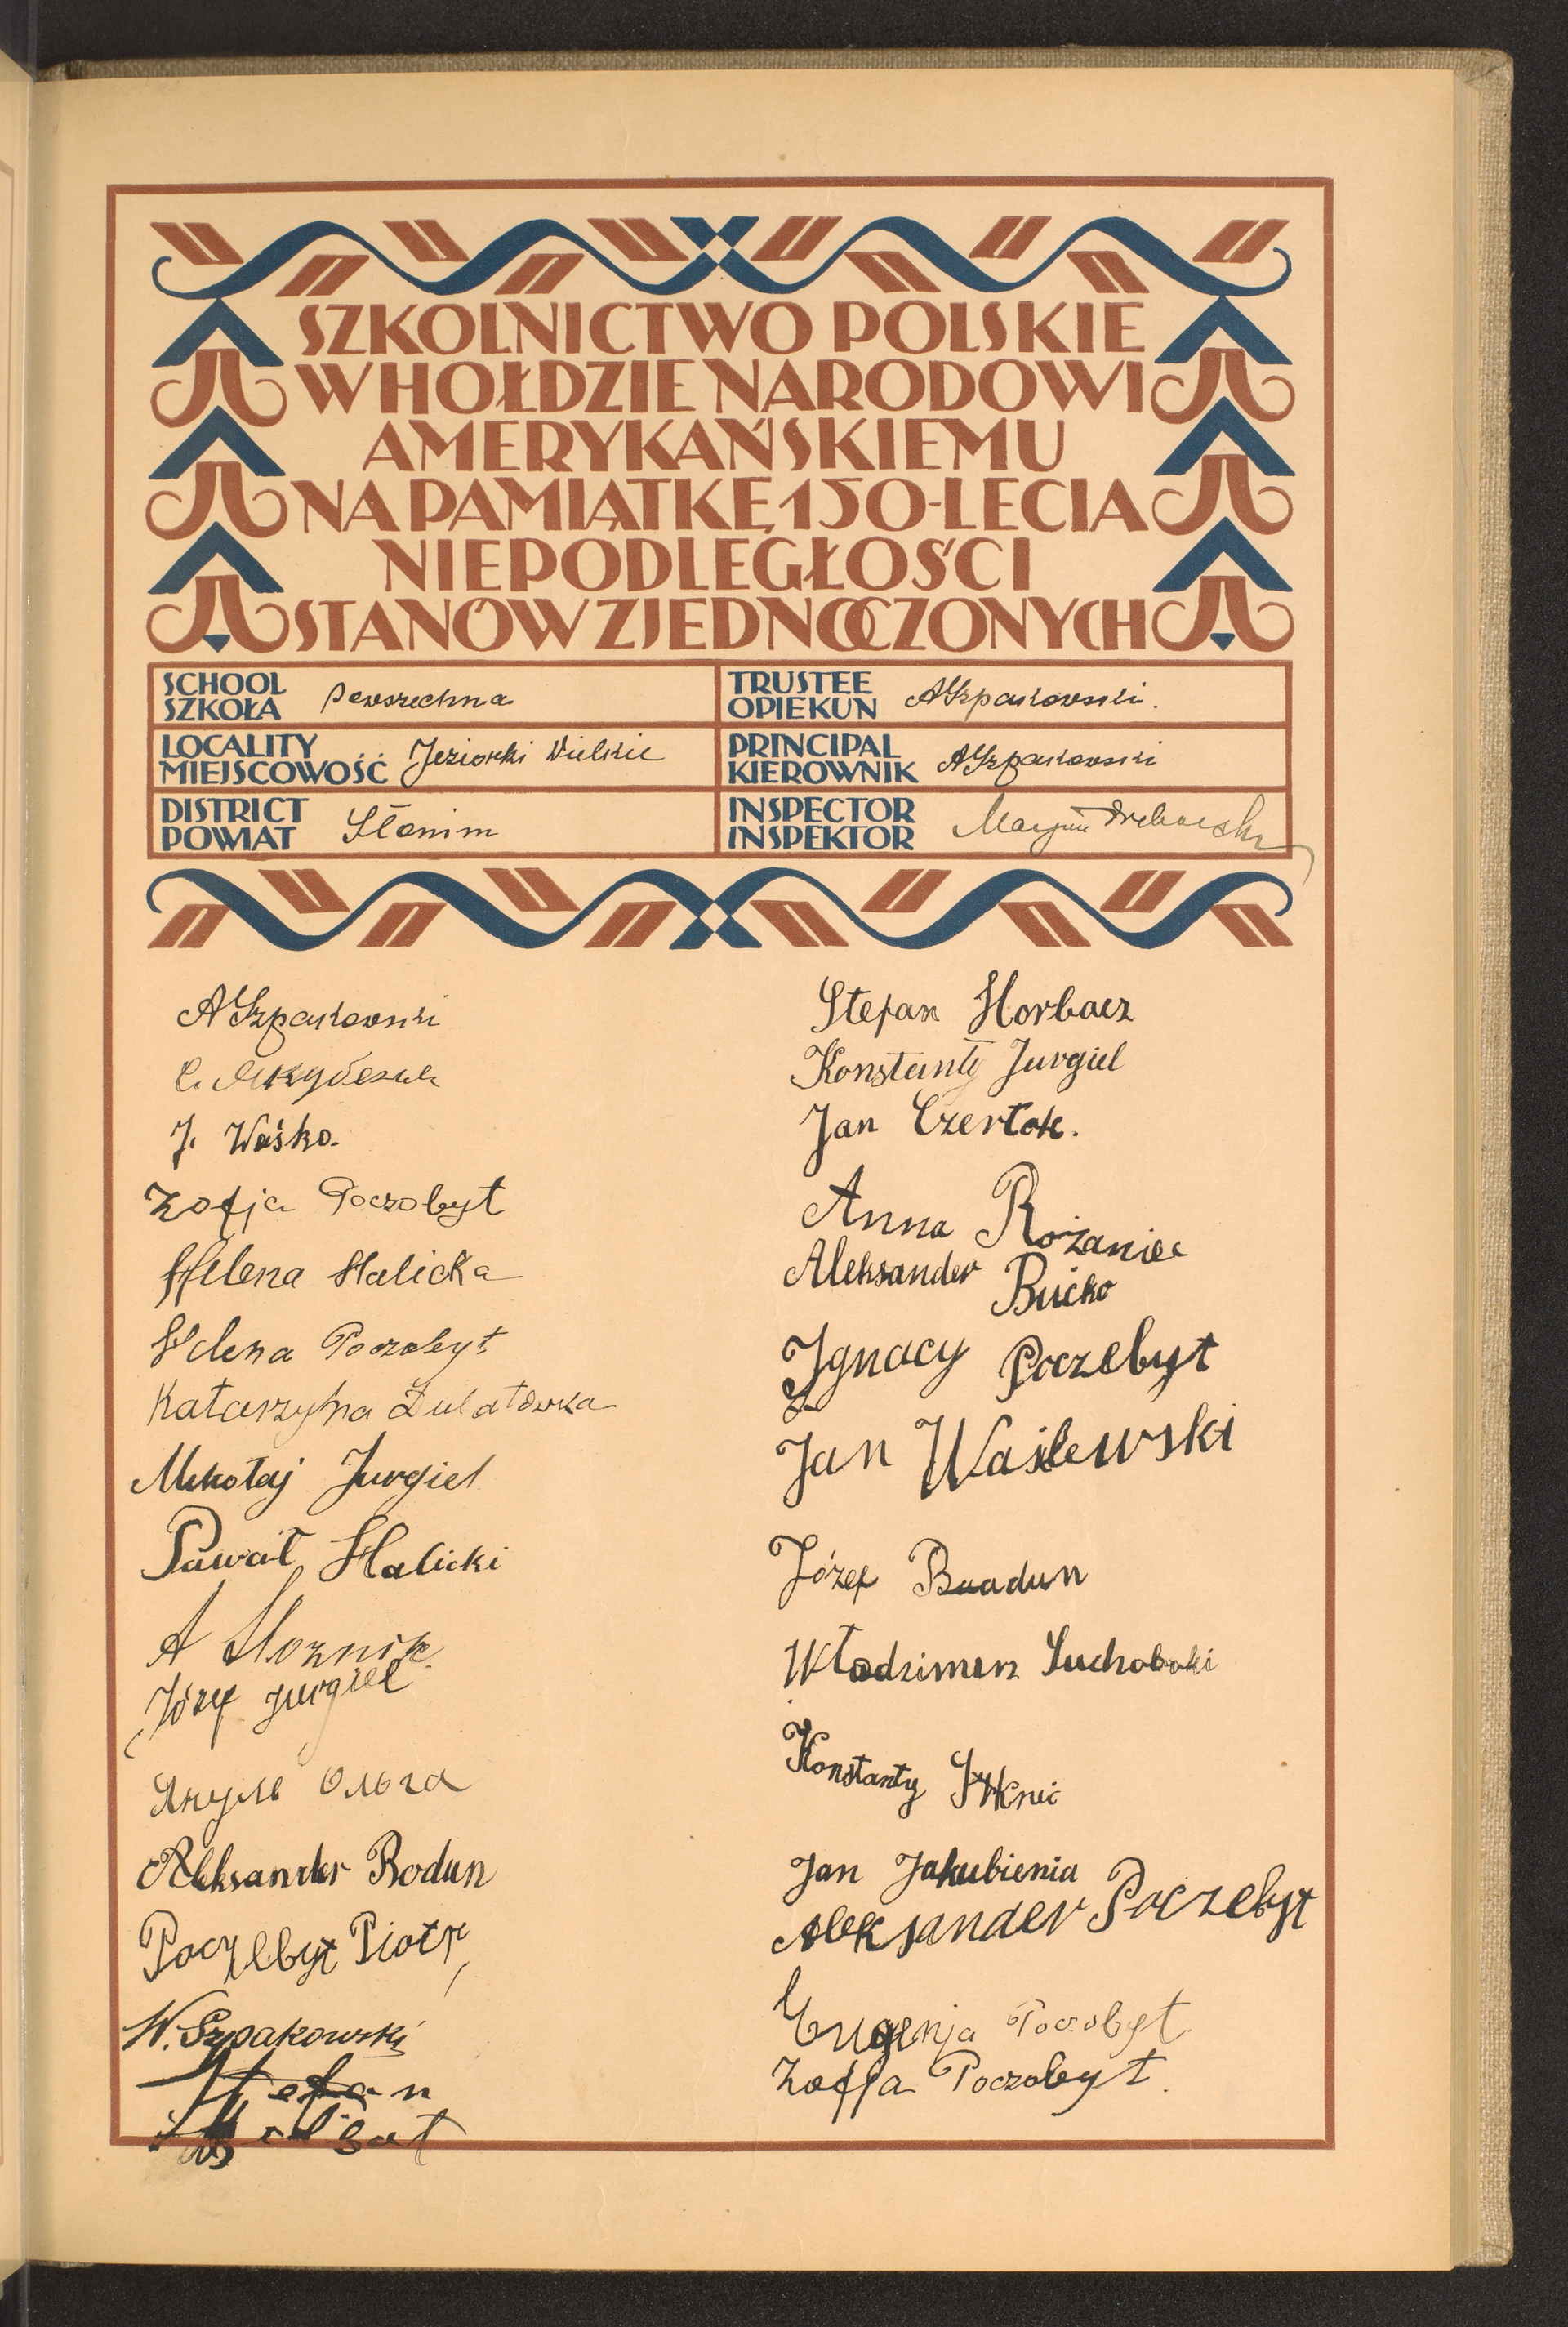 SZKOLNICTWO POLSKIE
W HOŁDZIE NARODOWI
AMERYKAŃSKIEMU
NA PAMIĄTKĘ 150-LECIA
NIEPODLEGŁOŚCI
STANÓW ZJEDNOCZONYCH
SCHOOL
SZKOŁA Powszechna
TRUSTEE
OPIEKUN ASzpakowski.
LOCALITY
MIEJSCOWOŚĆ Jeziorki Wielkie
PRINCIPAL
KIEROWNIK ASzpakowski
DISTRICT
POWIAT Słonim
INSPECTOR
INSPEKTOR
ASzpakowski
J. Waśko.
Zofja Poczobyt
Helena Halicka
Helena Poczobyt
Katarzyna
Mikołaj Jurgiel
Pawał Halicki
A
Józef Jurgiel
Ольга
Aleksander Bodun
Poczebyt Piotr
W. Szpakowski
Stefan
Stefan Horbacz
Konstanty Jurgiel
Jan Czertok.
Anna Rożaniec
Aleksander Bućko
Ignacy Poczebyt
Jan Waślewski
Józef
Konstanty
Jan Jakubienia
Aleksander Poczebyt
Eugenja Poczobyt
Zofja Poczobyt.